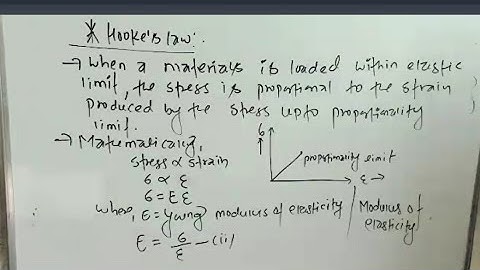 * Hooke's law:.
→ when a materials is loaded within elastic
limit, the stress is proportional to the strain
produced by the stress upto proportionality
limit.
→ Mathematically,
stress ∝ strain
σ ∝ ε
σ = E ε
where, E = young modulus of elasticity / Modulus of elasticity
E = σ/ε —(ii)
σ ↑
proportionality limit
ε →